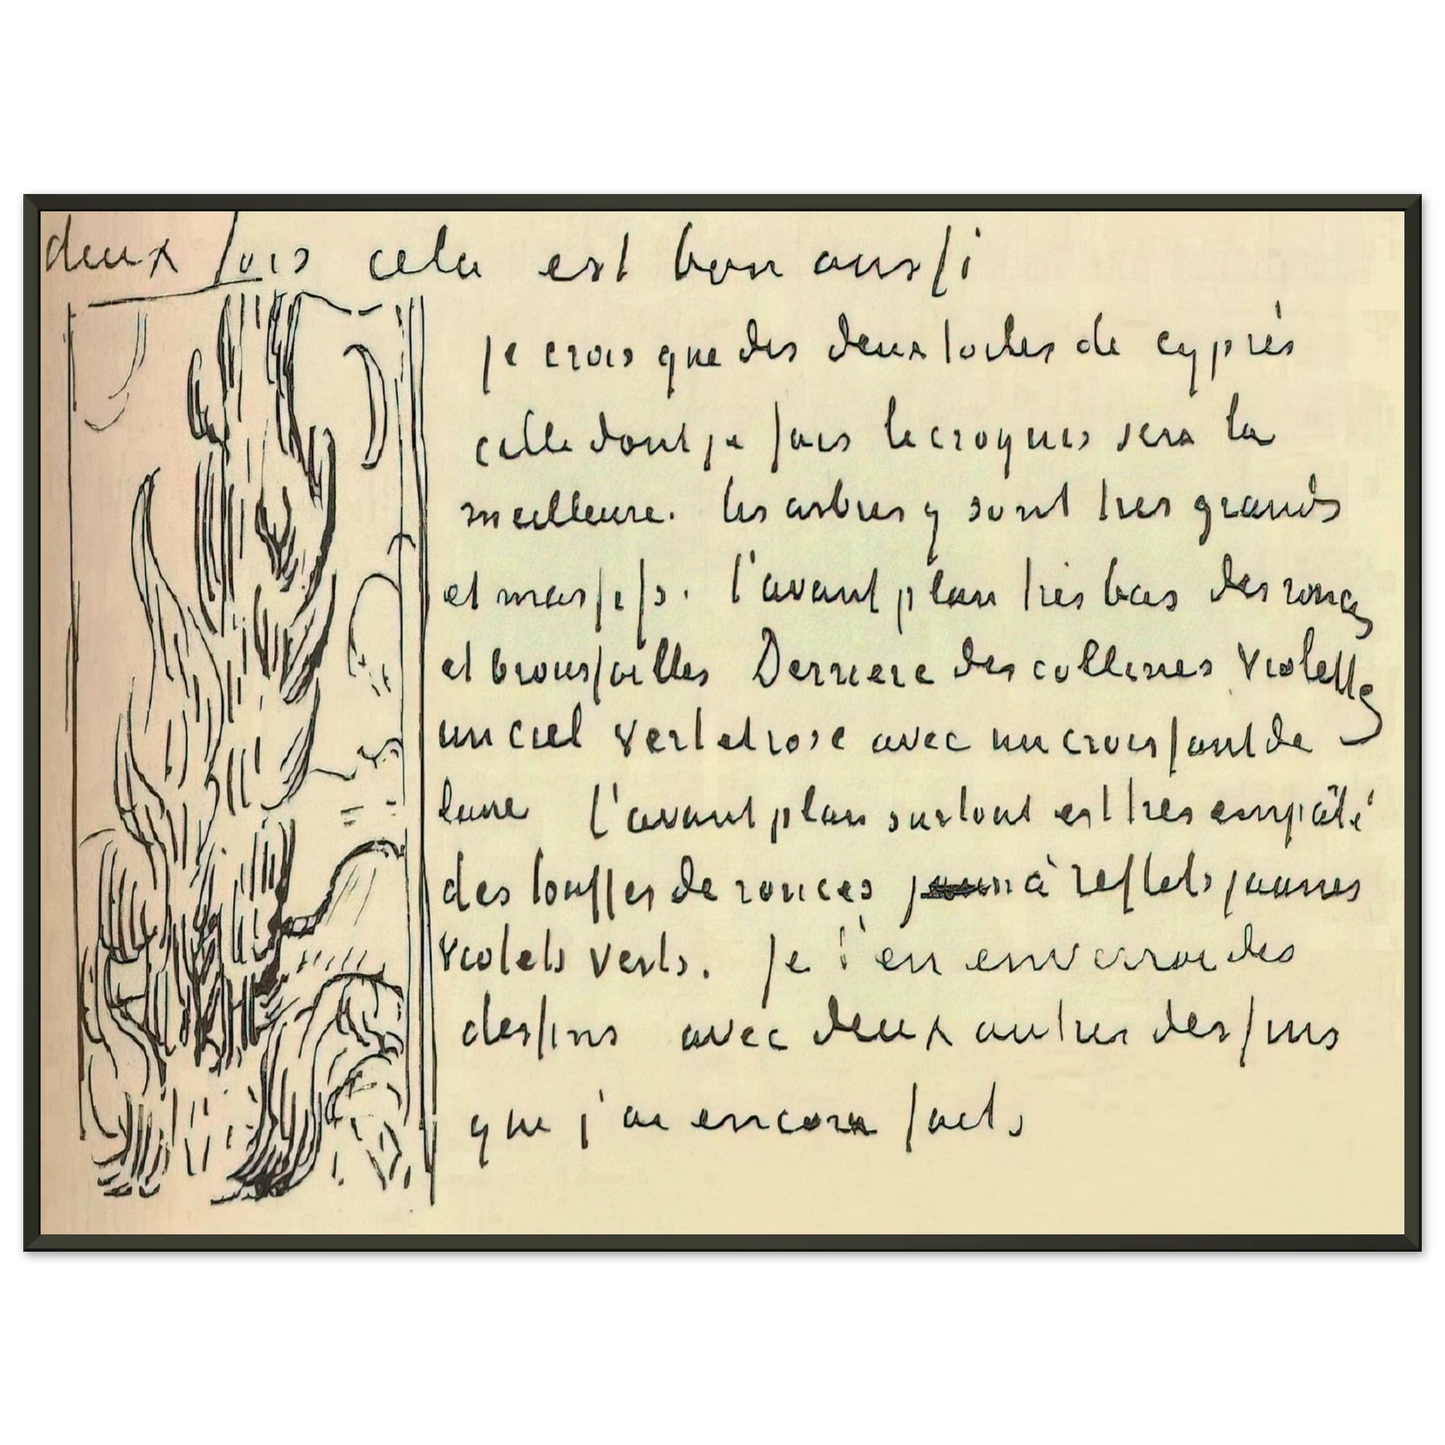 deux fois cela est bon aussi
je crois que des deux toiles de cyprès
celle dont je fais le croquis sera la
meilleure. les arbres y sont tres grands
et massifs. l'avant plan très bas des ronces
et broussailles Derriere des collines violettes
un ciel vert et rose avec un croissant de
lune l'avant plan surtout est tres empâté
des touffes de ronces à reflets jaunes
violets verts. je t'en enverrai des
dessins avec deux autres dessins
que j'ai encore faits